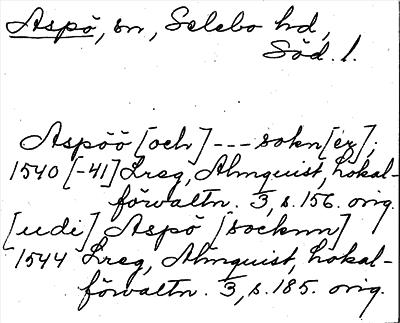 Aspö, sn, Selebo hd,
Söd. l.
Aspöö [och] --- sokn[ez],
1540 [-41] Lreg, Almquist, Lokal-
förvaltn. 3, s. 156. orig.
[udi] Aspö [socknn]
1544 Lreg, Almquist, Lokal-
förvaltn. 3, s. 185. orig.